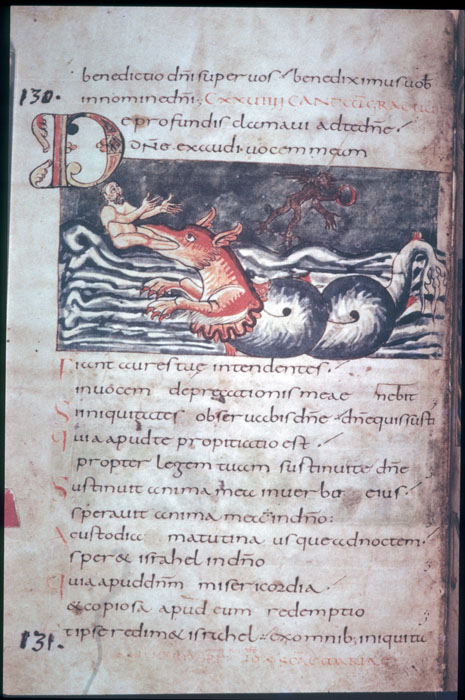 benedictio dñi super vos benediximus vob
130.
in nomine dñi. CXXVIIII CANTICU GRADUU
De profundis clamavi ad te dñe.
Dñe exaudi vocem meam
Fiant aures tuae intendentes.
in vocem deprecationis meae
Si iniquitates observabis dñe dñe quis susti
Quia apud te propitiatio est.
propter legem tuam sustinui te dñe
Sustinuit anima mea in verbo eius
speravit anima mea in dño:
A custodia matutina usque ad noctem.
sper& israhel in dño
Quia apud dñm misericordia.
& copiosa apud eum redemptio
131.
& ipse redim& israhel ex omnib; iniquita